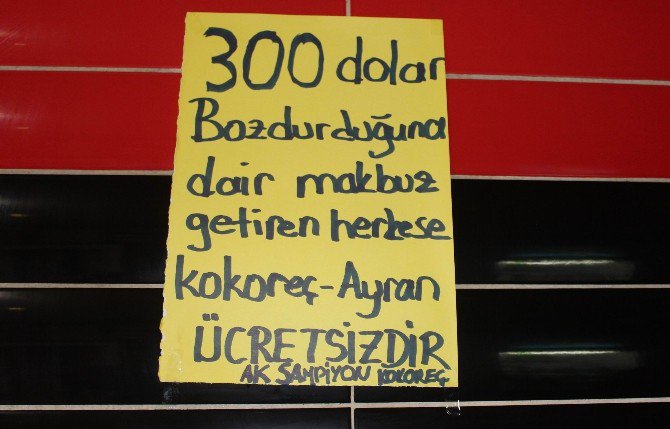 300 dolar
Bozdurduğuna
dair makbuz
getiren herkese
kokoreç-Ayran
ÜCRETSİZDİR
AK ŞAMPİYON KOKOREÇ